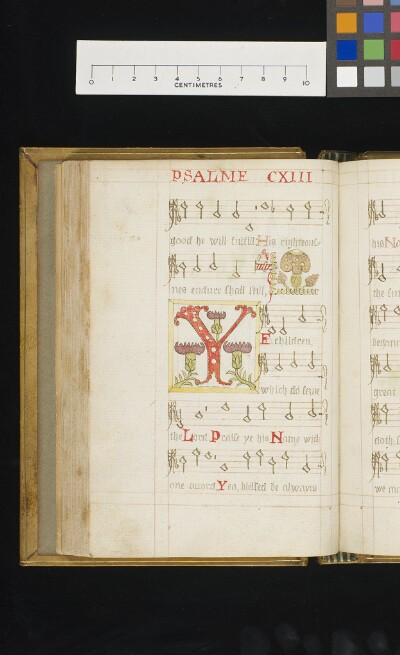 0 1 2 3 4 5 6 7 8 9 10
CENTIMETRES
PSALME CXIII
good he will fulfill His righteous-
nes endure shall still,
YE children,
which do serue
the Lord Praise ye his Name with
one accord Yea, blessed be alwayes
his Na
the sun
great
we may